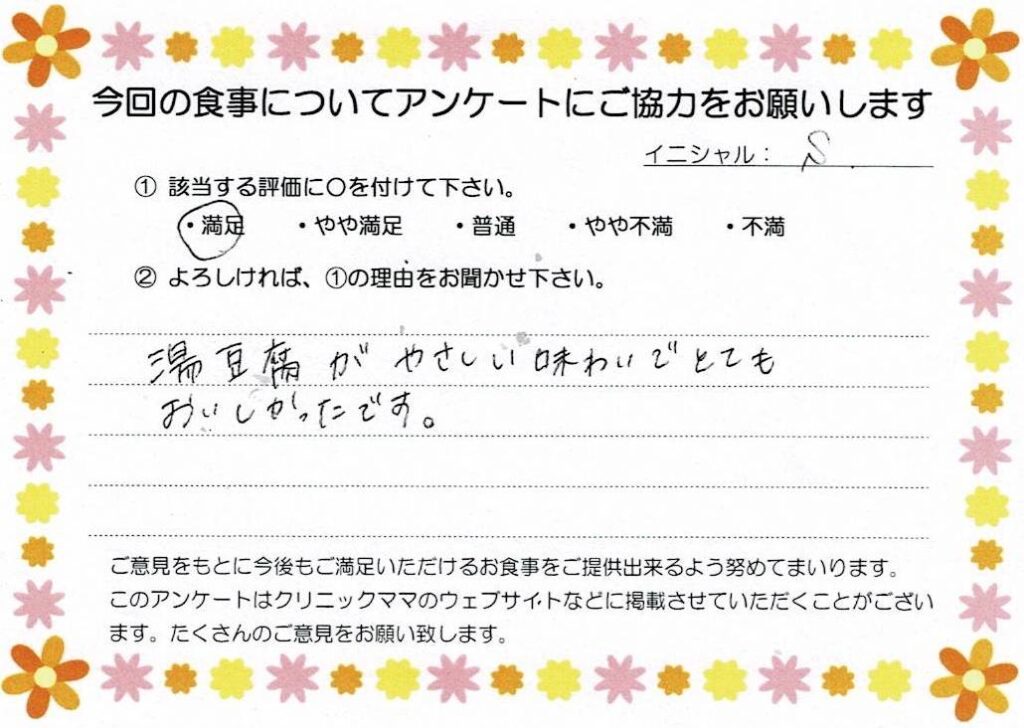 今回の食事についてアンケートにご協力をお願いします
イニシャル： S
① 該当する評価に〇を付けて下さい。
・満足 ・やや満足 ・普通 ・やや不満 ・不満
② よろしければ、①の理由をお聞かせ下さい。
湯豆腐が やさしい味わいでとても
おいしかったです。
ご意見をもとに今後もご満足いただけるお食事をご提供出来るよう努めてまいります。
このアンケートはクリニックママのウェブサイトなどに掲載させていただくことがござい
ます。たくさんのご意見をお願い致します。